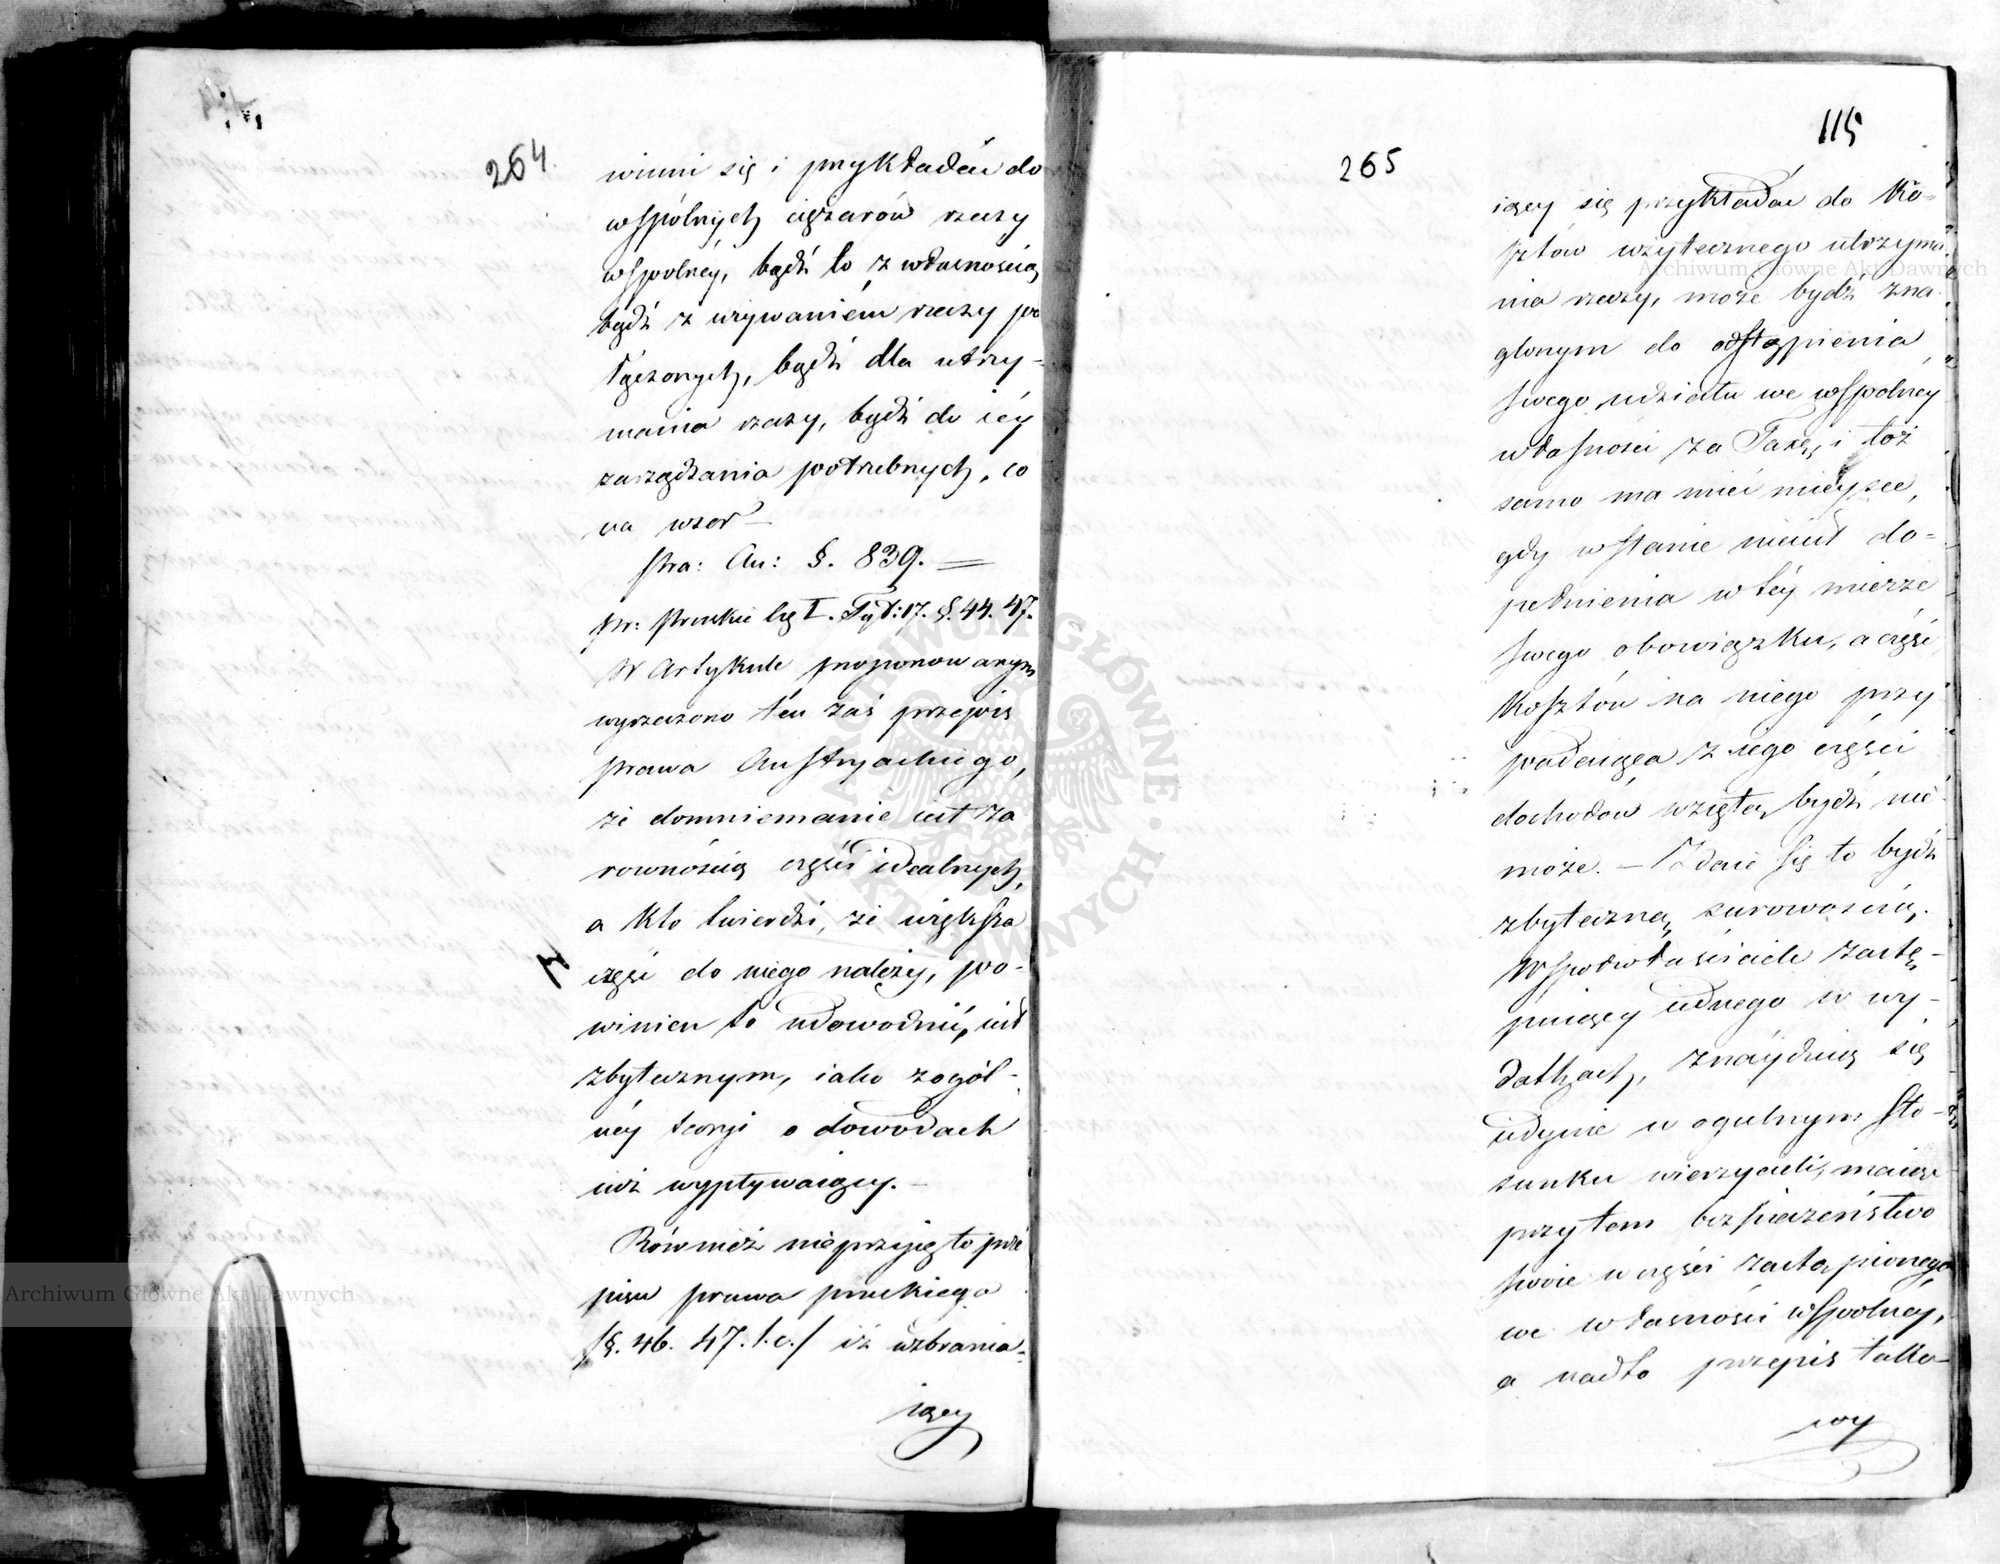 264.
winni się i przykładać do
wspólnych ciężarów rzeczy
wspolnéy, bądź to z własnością
bądź z używaniem rzeczy po
łączonych, bądź dla utrzy-
mania rzeczy, bądź do iéy
zarządzania potrzebnych, co
na wzor
Pra: Au: §. 839. =
Pr: Pruskie Czę I. Tyt: 17. §. 44. 47.
W Artykule proponowanym
wyrzeczono ten zaś przepis
prawa Austryackiego,
że domniemanie iest za
rownością części idealnych,
a kto twierdzi, że większa
część do niego należy, po-
winien to udowodnić, iest
zbytecznym, iako z ogól-
néy teoryi o dowodach
iuż wypływaiący. –
Również nieprzyięto prze
pisu prawa pruskiego
/§. 46. 47. l.c./ iż wzbrania-
iący
115
265
iący się przykładać do Ko-
sztów użytecznego utrzyma
nia rzeczy, może bydź zna
glonym do odstąpienia
swego udziału we wspolney
własności za Taxę, i toż
samo ma mieć mieysce,
gdy w stanie nieiest do-
pełnienia w téy mierze
swego obowiązku, a część
Kosztów na niego przy
padaiąca z iego części
dochodów wziętą bydź nie
może. – Zdaie się to bydź
zbyteczną surowością.
Wspołwłaściciele zastę-
puiący iednego w wy-
datkach, znayduią się
iedynie w ogulnym sto-
sunku wierzycieli, maiąc
przytem bezpieczeństwo
swoie w części zastąpionego
we własności wspolnéy,
a nadto przepis tako-
wy
Archiwum Główne Akt Dawnych
Archiwum Główne Akt Dawnych
ARCHIWUM GŁÓWNE AKT DAWNYCH